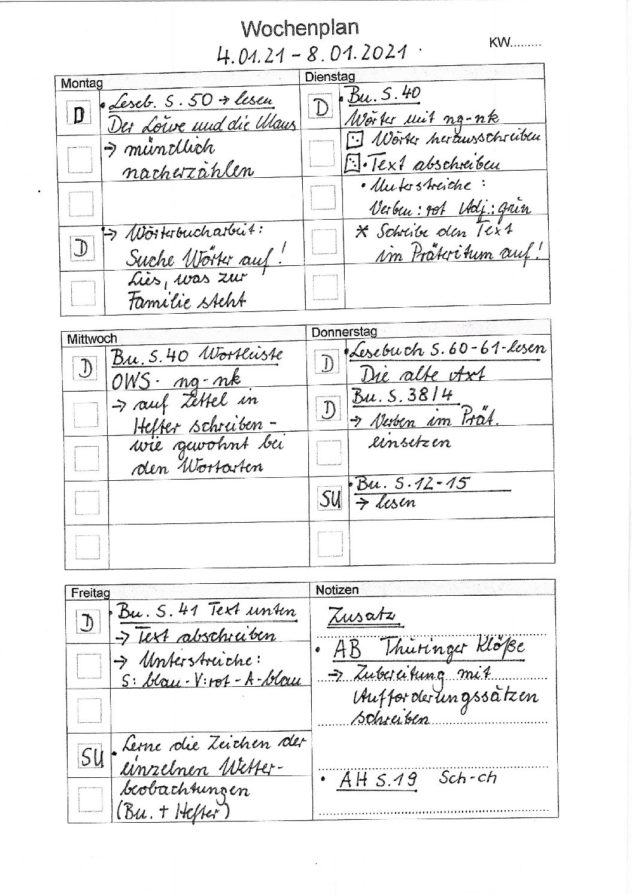 Wochenplan
4.01.21 – 8.01.2021.
KW.........
Montag
D
• Leseb. S. 50 → lesen
Der Löwe und die Maus
→ mündlich
nacherzählen
D
→ Wörterbucharbeit:
Suche Wörter auf!
Lies, was zur
Familie steht
Dienstag
D
• Bu. S. 40
Wörter mit ng-nk
Wörter herausschreiben
• Text abschreiben
• Unterstreiche:
Verben: rot Adj.: grün
* Schreibe den Text
im Präteritum auf!
Mittwoch
D
Bu. S. 40 Wortleiste
OWS · ng-nk
→ auf Zettel in
Hefter schreiben –
wie gewohnt bei
den Wortarten
Donnerstag
D
• Lesebuch S. 60-61-lesen
Die alte Axt
D
Bu. S. 38/4
→ Verben im Prät.
einsetzen
SU
• Bu. S. 12-15
→ lesen
Freitag
D
• Bu. S. 41 Text unten
→ Text abschreiben
→ Unterstreiche:
S: blau - V: rot - A - blau
SU
• Lerne die Zeichen der
einzelnen Wetter-
beobachtungen
(Bu. + Hefter)
Notizen
Zusatz
• AB Thüringer Klöße
→ Zubereitung mit
Aufforderungssätzen
schreiben
• AH S. 19 Sch-ch